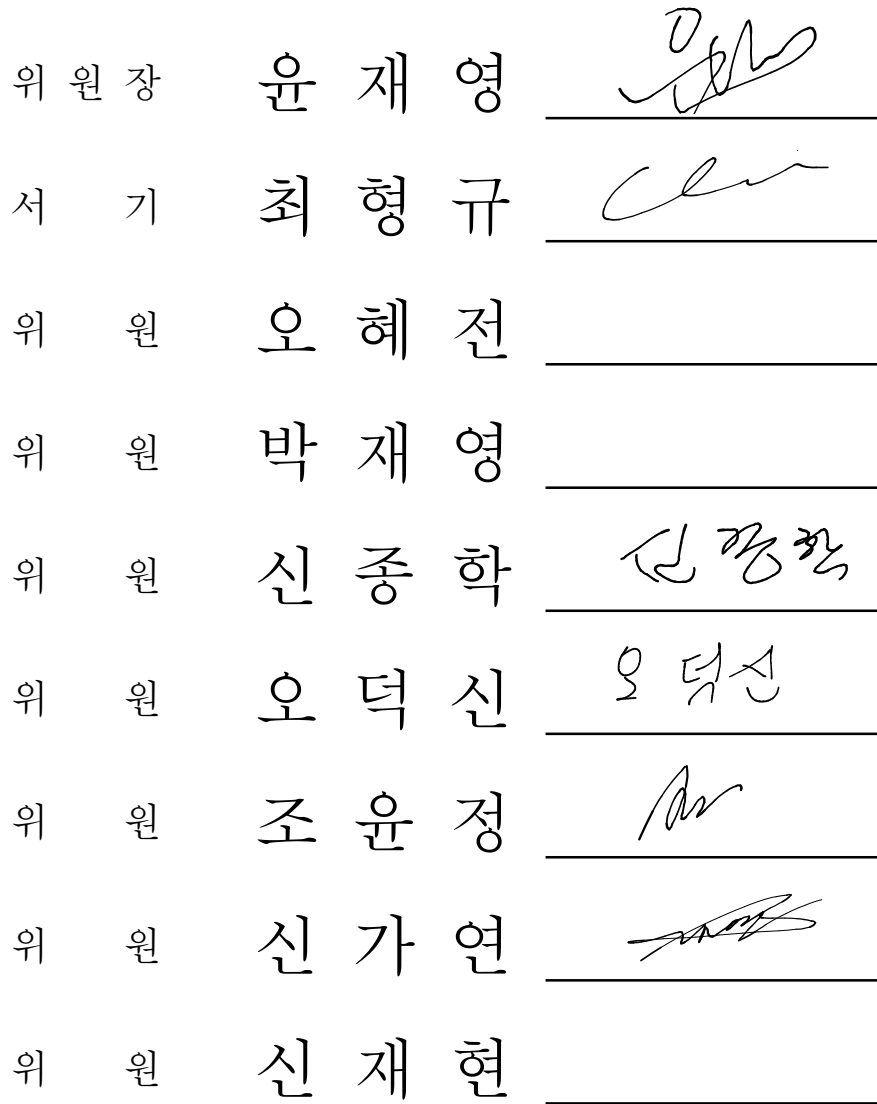 위 원 장 윤 재 영
서 기 최 형 규
위 원 오 혜 전
위 원 박 재 영
위 원 신 종 학 신종학
위 원 오 덕 신 오 덕신
위 원 조 윤 정
위 원 신 가 연
위 원 신 재 현